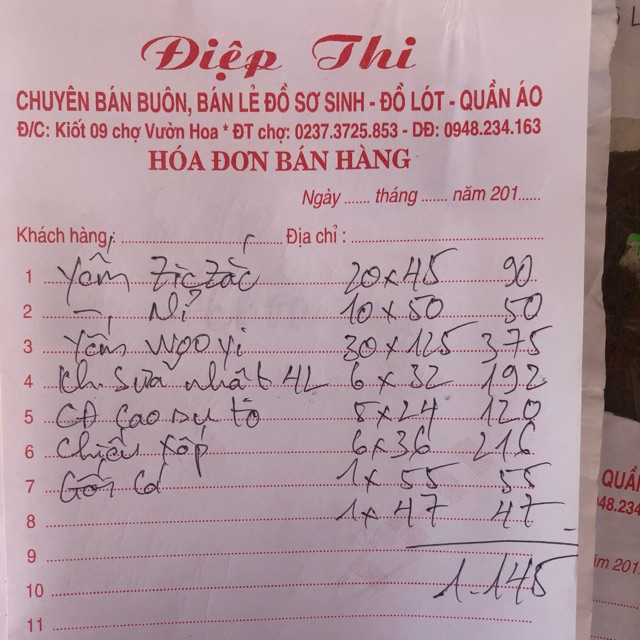 Điệp Thi
CHUYÊN BÁN BUÔN, BÁN LẺ ĐỒ SƠ SINH - ĐỒ LÓT - QUẦN ÁO
Đ/C: Kiốt 09 chợ Vườn Hoa * ĐT chợ: 0237.3725.853 - DĐ: 0948.234.163
HÓA ĐƠN BÁN HÀNG
Ngày ...... tháng ....... năm 201......
Khách hàng: .................................. Địa chỉ : ..................................
1 Yếm Zíc Zắc 20 x 45 90
2 Nỉ 10 x 50 50
3 Yếm 30 x 125 375
4 Kh. Sữa nhật 4L 6 x 32 192
5 cao su to 5 x 24 120
6 Chiếu xốp 6 x 36 216
7 Gối 1 x 55 55
8 1 x 47 47
9
10 1.145
11
QUẦN
948.234
năm 201